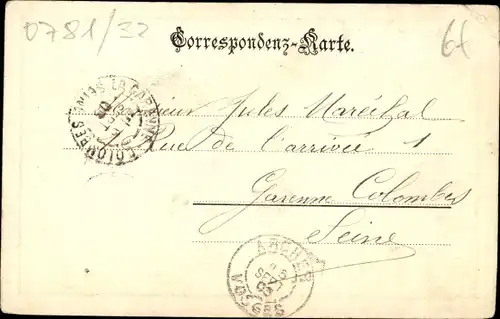 0781/32
6f
Correspondenz-Karte.
Monsieur Jules Maréchal
Rue de l'arrivée 1
Garenne Colombes
Seine
VOSGES